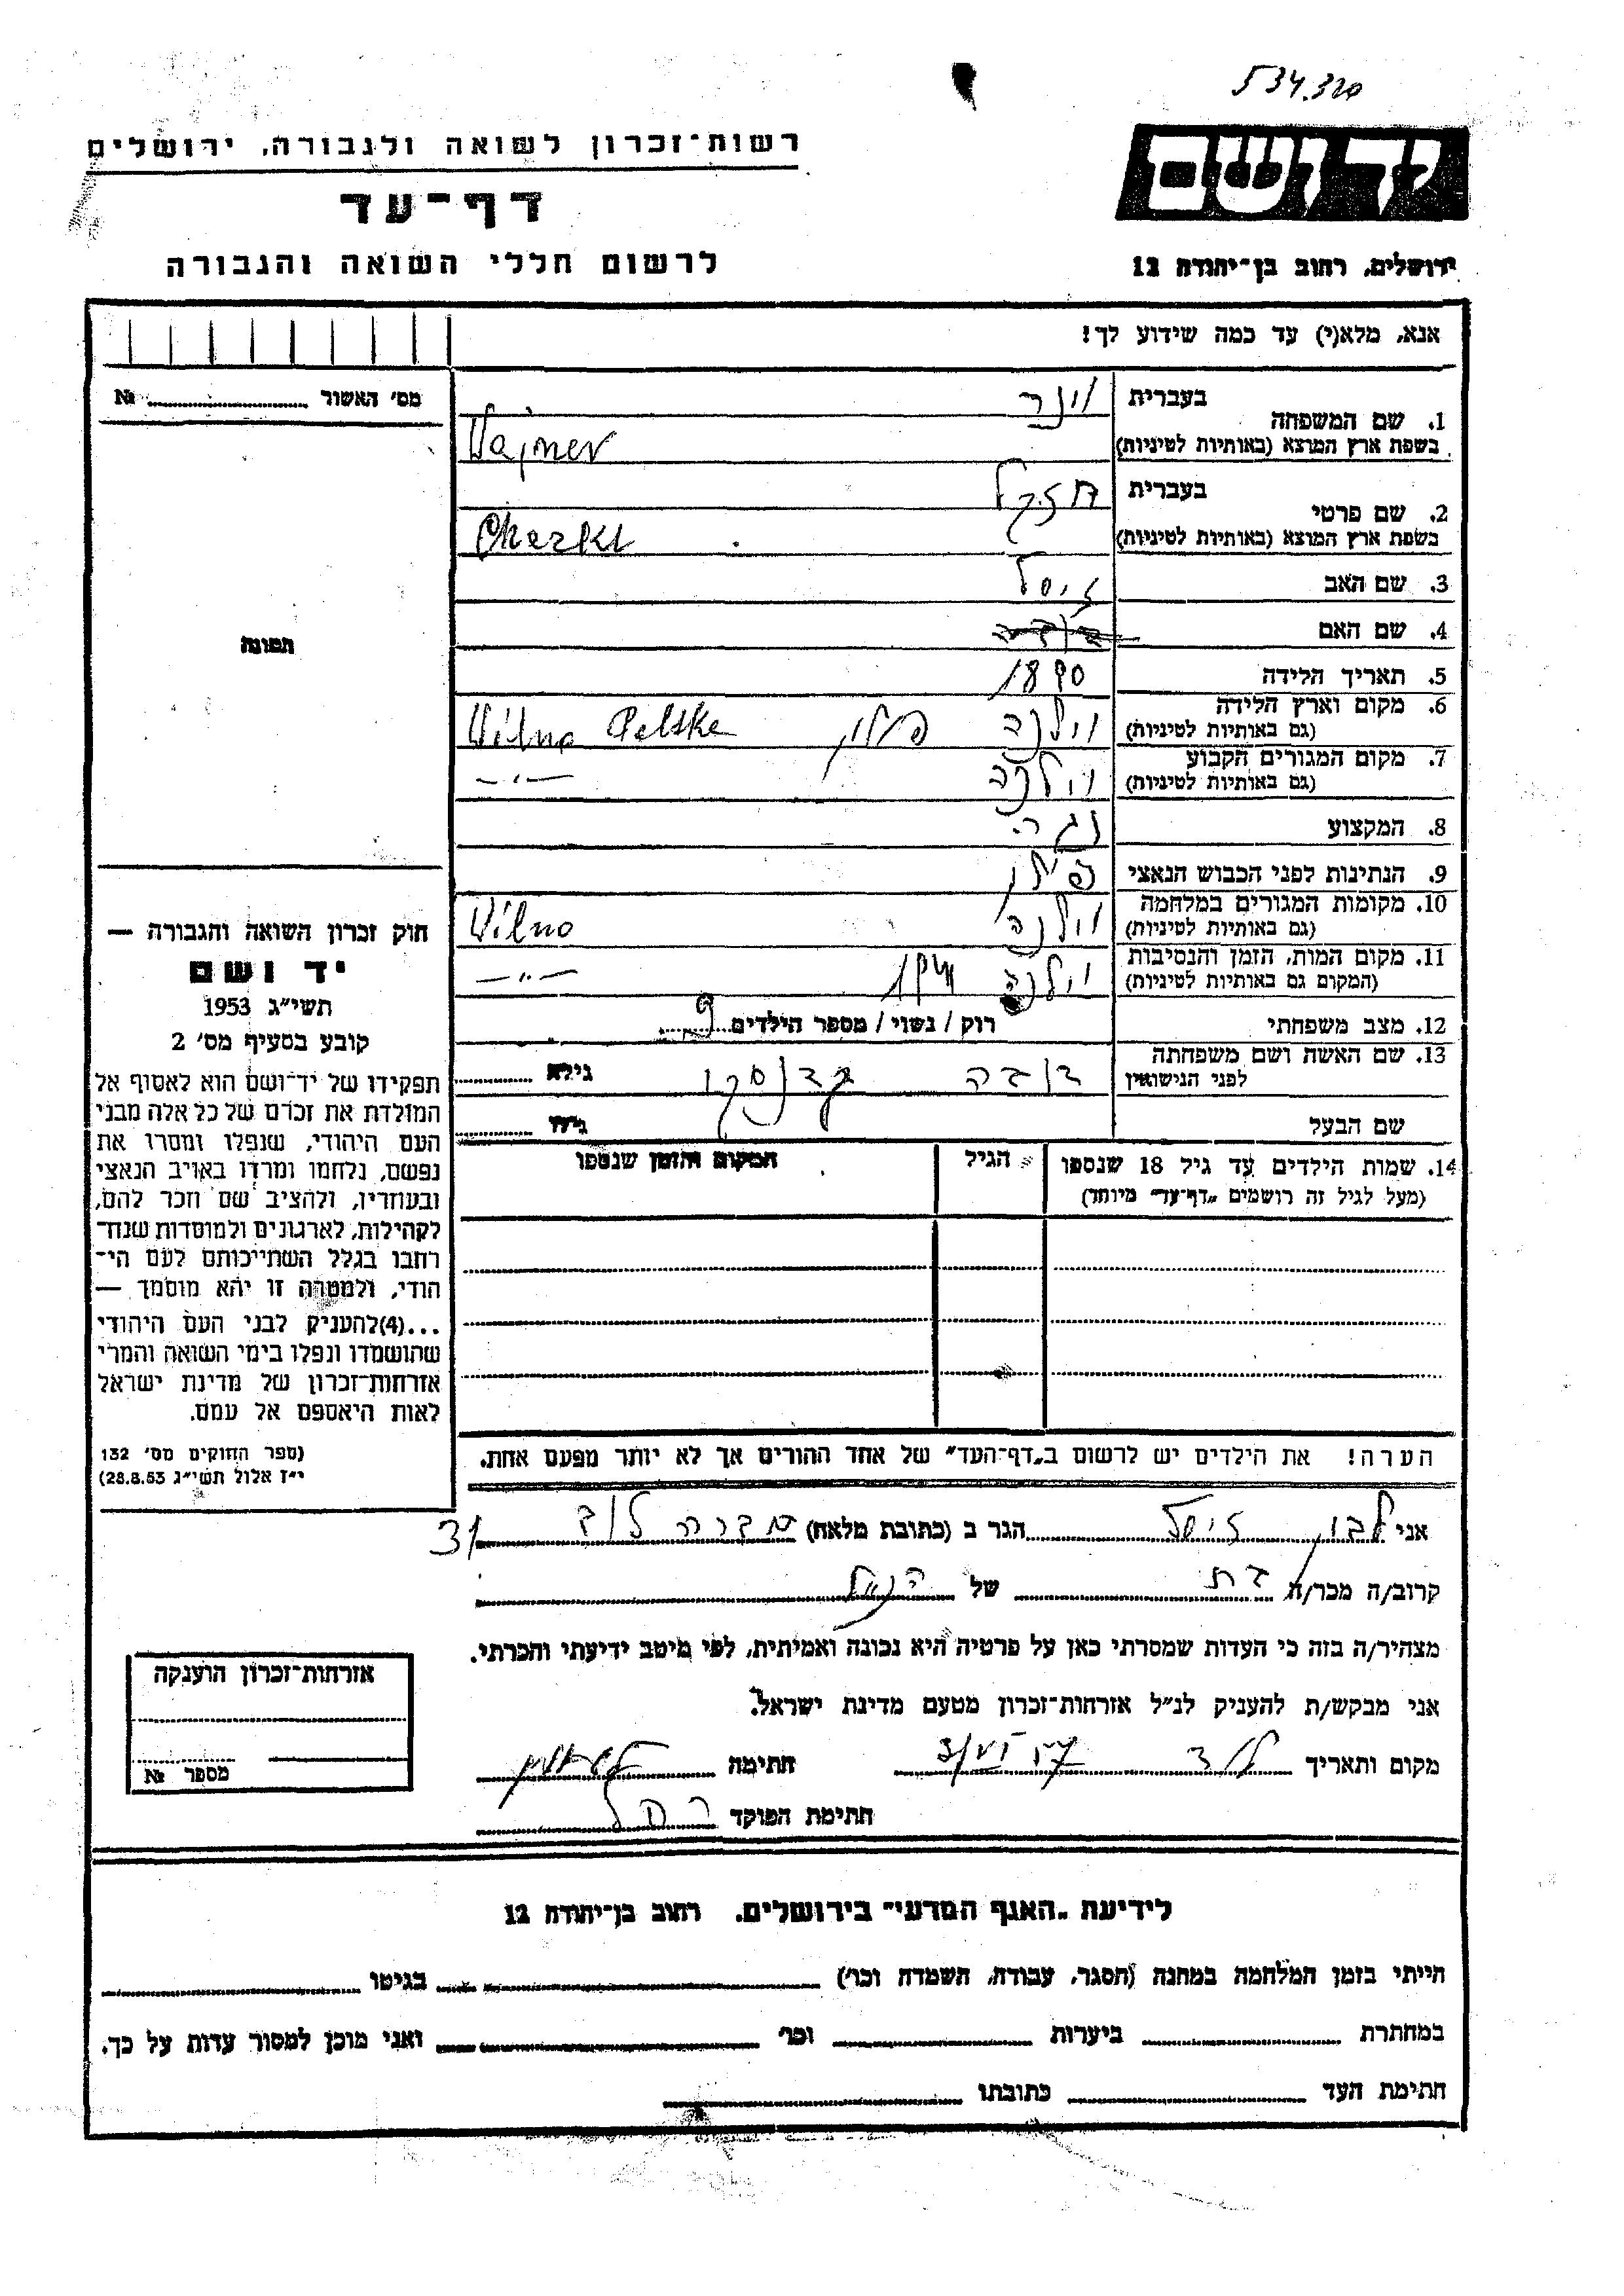 534.320
יד ושם
רשות־זכרון לשואה ולגבורה, ירושלים
דף־עד
לרשום חללי השואה והגבורה
ירושלים, רחוב בן־יהודה 12
אנא, מלא(י) עד כמה שידוע לך!
מס׳ האשור № 
1. שם המשפחה בעברית וינר
בשפת ארץ המוצא (באותיות לטיניות) Wajner
2. שם פרטי בעברית חזקל
בשפת ארץ המוצא (באותיות לטיניות)
3. שם האב זיסל
4. שם האם
5. תאריך הלידה 1890
6. מקום וארץ הלידה (גם באותיות לטיניות) וילנה פולין Wilno Polska
7. מקום המגורים הקבוע (גם באותיות לטיניות) וילנה —״—
8. המקצוע נגר
9. הנתינות לפני הכבוש הנאצי פולין
10. מקומות המגורים במלחמה (גם באותיות לטיניות) וילנה Wilno
11. מקום המות, הזמן והנסיבות (המקום גם באותיות לטיניות) וילנה —״—
12. מצב משפחתי רוק / נשוי / מספר הילדים 9
13. שם האשה ושם משפחתה לפני הנישואין גילא
שם הבעל גילו
14. שמות הילדים עד גיל 18 שנספו (מעל לגיל זה רושמים "דף־עד" מיוחד)
הגיל
המקום והזמן שנספו
תמונה
חוק זכרון השואה והגבורה —
יד ושם
תשי״ג 1953
קובע בסעיף מס׳ 2
תפקידו של יד־ושם הוא לאסוף אל
המולדת את זכרם של כל אלה מבני
העם היהודי, שנפלו ומסרו את
נפשם, נלחמו ומרדו באויב הנאצי
ובעוזריו, ולהציב שם וזכר להם,
לקהילות, לארגונים ולמוסדות שנח־
רבו בגלל השתייכותם לעם הי־
הודי, ולמטרה זו יהא מוסמך —
...(4)להעניק לבני העם היהודי
שהושמדו ונפלו בימי השואה והמרי
אזרחות־זכרון של מדינת ישראל
לאות היאספם אל עמם.
(ספר החוקים מס׳ 132
י״ז אלול תשי״ג 28.8.53)
הערה! את הילדים יש לרשום ב„דף־העד" של אחד ההורים אך לא יותר מפעם אחת.
אני זיסל הגר ב (כתובת מלאה) 31
קרוב/ה מכר/ה בת של הנ״ל
מצהיר/ה בזה כי העדות שמסרתי כאן על פרטיה היא נכונה ואמיתית, לפי מיטב ידיעתי והכרתי.
אני מבקש/ת להעניק לנ״ל אזרחות־זכרון מטעם מדינת ישראל.
מקום ותאריך לוד חתימה
חתימת הפוקד רחל
אזרחות־זכרון הוענקה
מספר №
לידיעת „האגף המדעי" בירושלים. רחוב בן־יהודה 12
הייתי בזמן המלחמה במחנה (הסגר, עבודה, השמדה וכו׳) בגיטו
במחתרת ביערות וכו׳ ואני מוכן למסור עדות על כך.
חתימת העד כתובתו